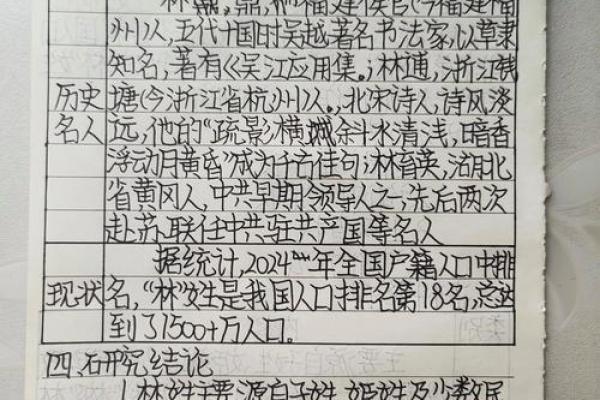 林鼎,鼎,福建侯官(今福建福
州)人,五代十国时吴越著名书法家,以草隶
知名,著有《吴江应用集》;林逋,浙江钱
历史 塘(今浙江省杭州)人。北宋诗人,诗风淡
名人 远,他的“疏影横斜水清浅,暗香
浮动月黄昏”成为千古佳句;林育英,湖北
省黄冈人,中共早期领导人之一,先后两次
赴苏联任中共驻共产国等名人
据统计,2024年全国户籍人口中排
现状 名,“林”姓是我国人口排名第18名,总达
到了1500+万人口。
四.研究结论
1.林姓主要源自子姓、姬姓及少数民